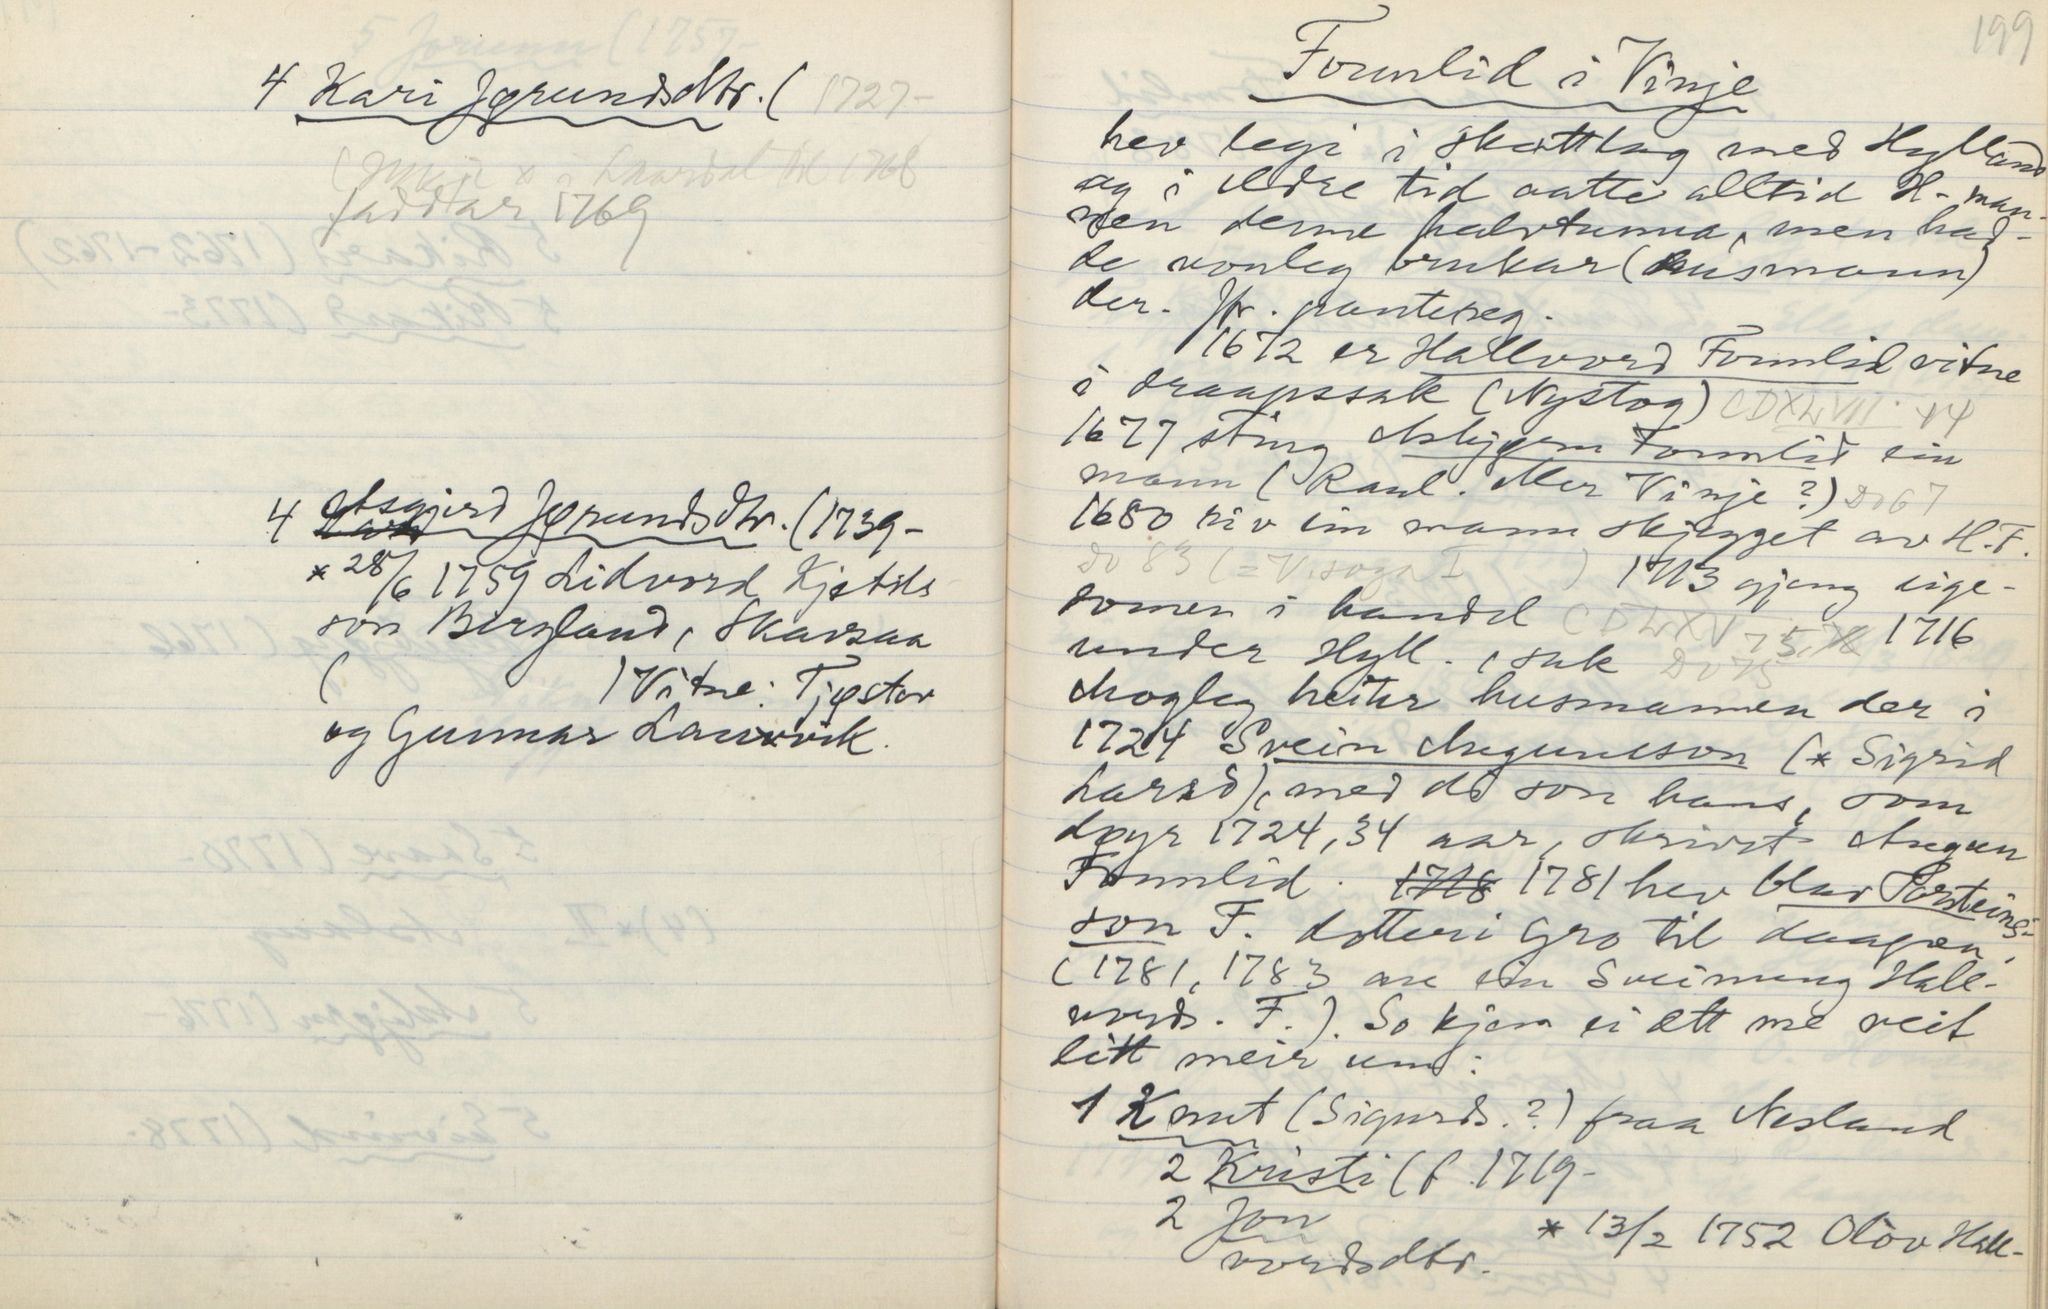 4 Kari Jørundsdtr. ( 1727-
faddar 1769
4 Asgjerd Jørundsdtr. (1739-
* 28/6 1759 Lidvord Kjetils
son Bergland, Skavsaa
( ) Vitne: Tjøstov
og Gunnar Laurvik.
199
Formlid i Vinje
hev legi i skattlag med Hylland
og i eldre tid aatte alltid H-man-
nen denne halvtunna, men had-
de vonleg brukar (husmann)
der. Jfr. pantereg.
1672 er Hallvord Formlid vitne
i draapssak (Nystog) CDXLVII. 44
1677 sting Asbjørn Formlid ein
mann (Raul. eller Vinje ?) Do 67
1680 riv ein mann skjegget av H.F.
Do 83 (= V.soga I ) 1713 gjeng eige-
domen i handel CDLXV 75, 1716
under Hyll. , sak Do 75
Mogleg heiter husmannen der i
1724 Svein Aagunsson (* Sigrid
Larsd), med di son hans, som
døyr 1724, 34 aar, skrivst Augun
Formlid. 1718 1781 hev Olav Torsteins-
son F. dotteri Gro til daapen,
(1781, 1783 er ein Sveinung Hall-
vords. F.). So kjem ei ætt me veit
litt meir um:
1 Knut (Sigurds. ?) fraa Nesland
2 Kristi (f 1719-
2 Jon * 13/2 1752 Olòv Hall-
vordsdtr.